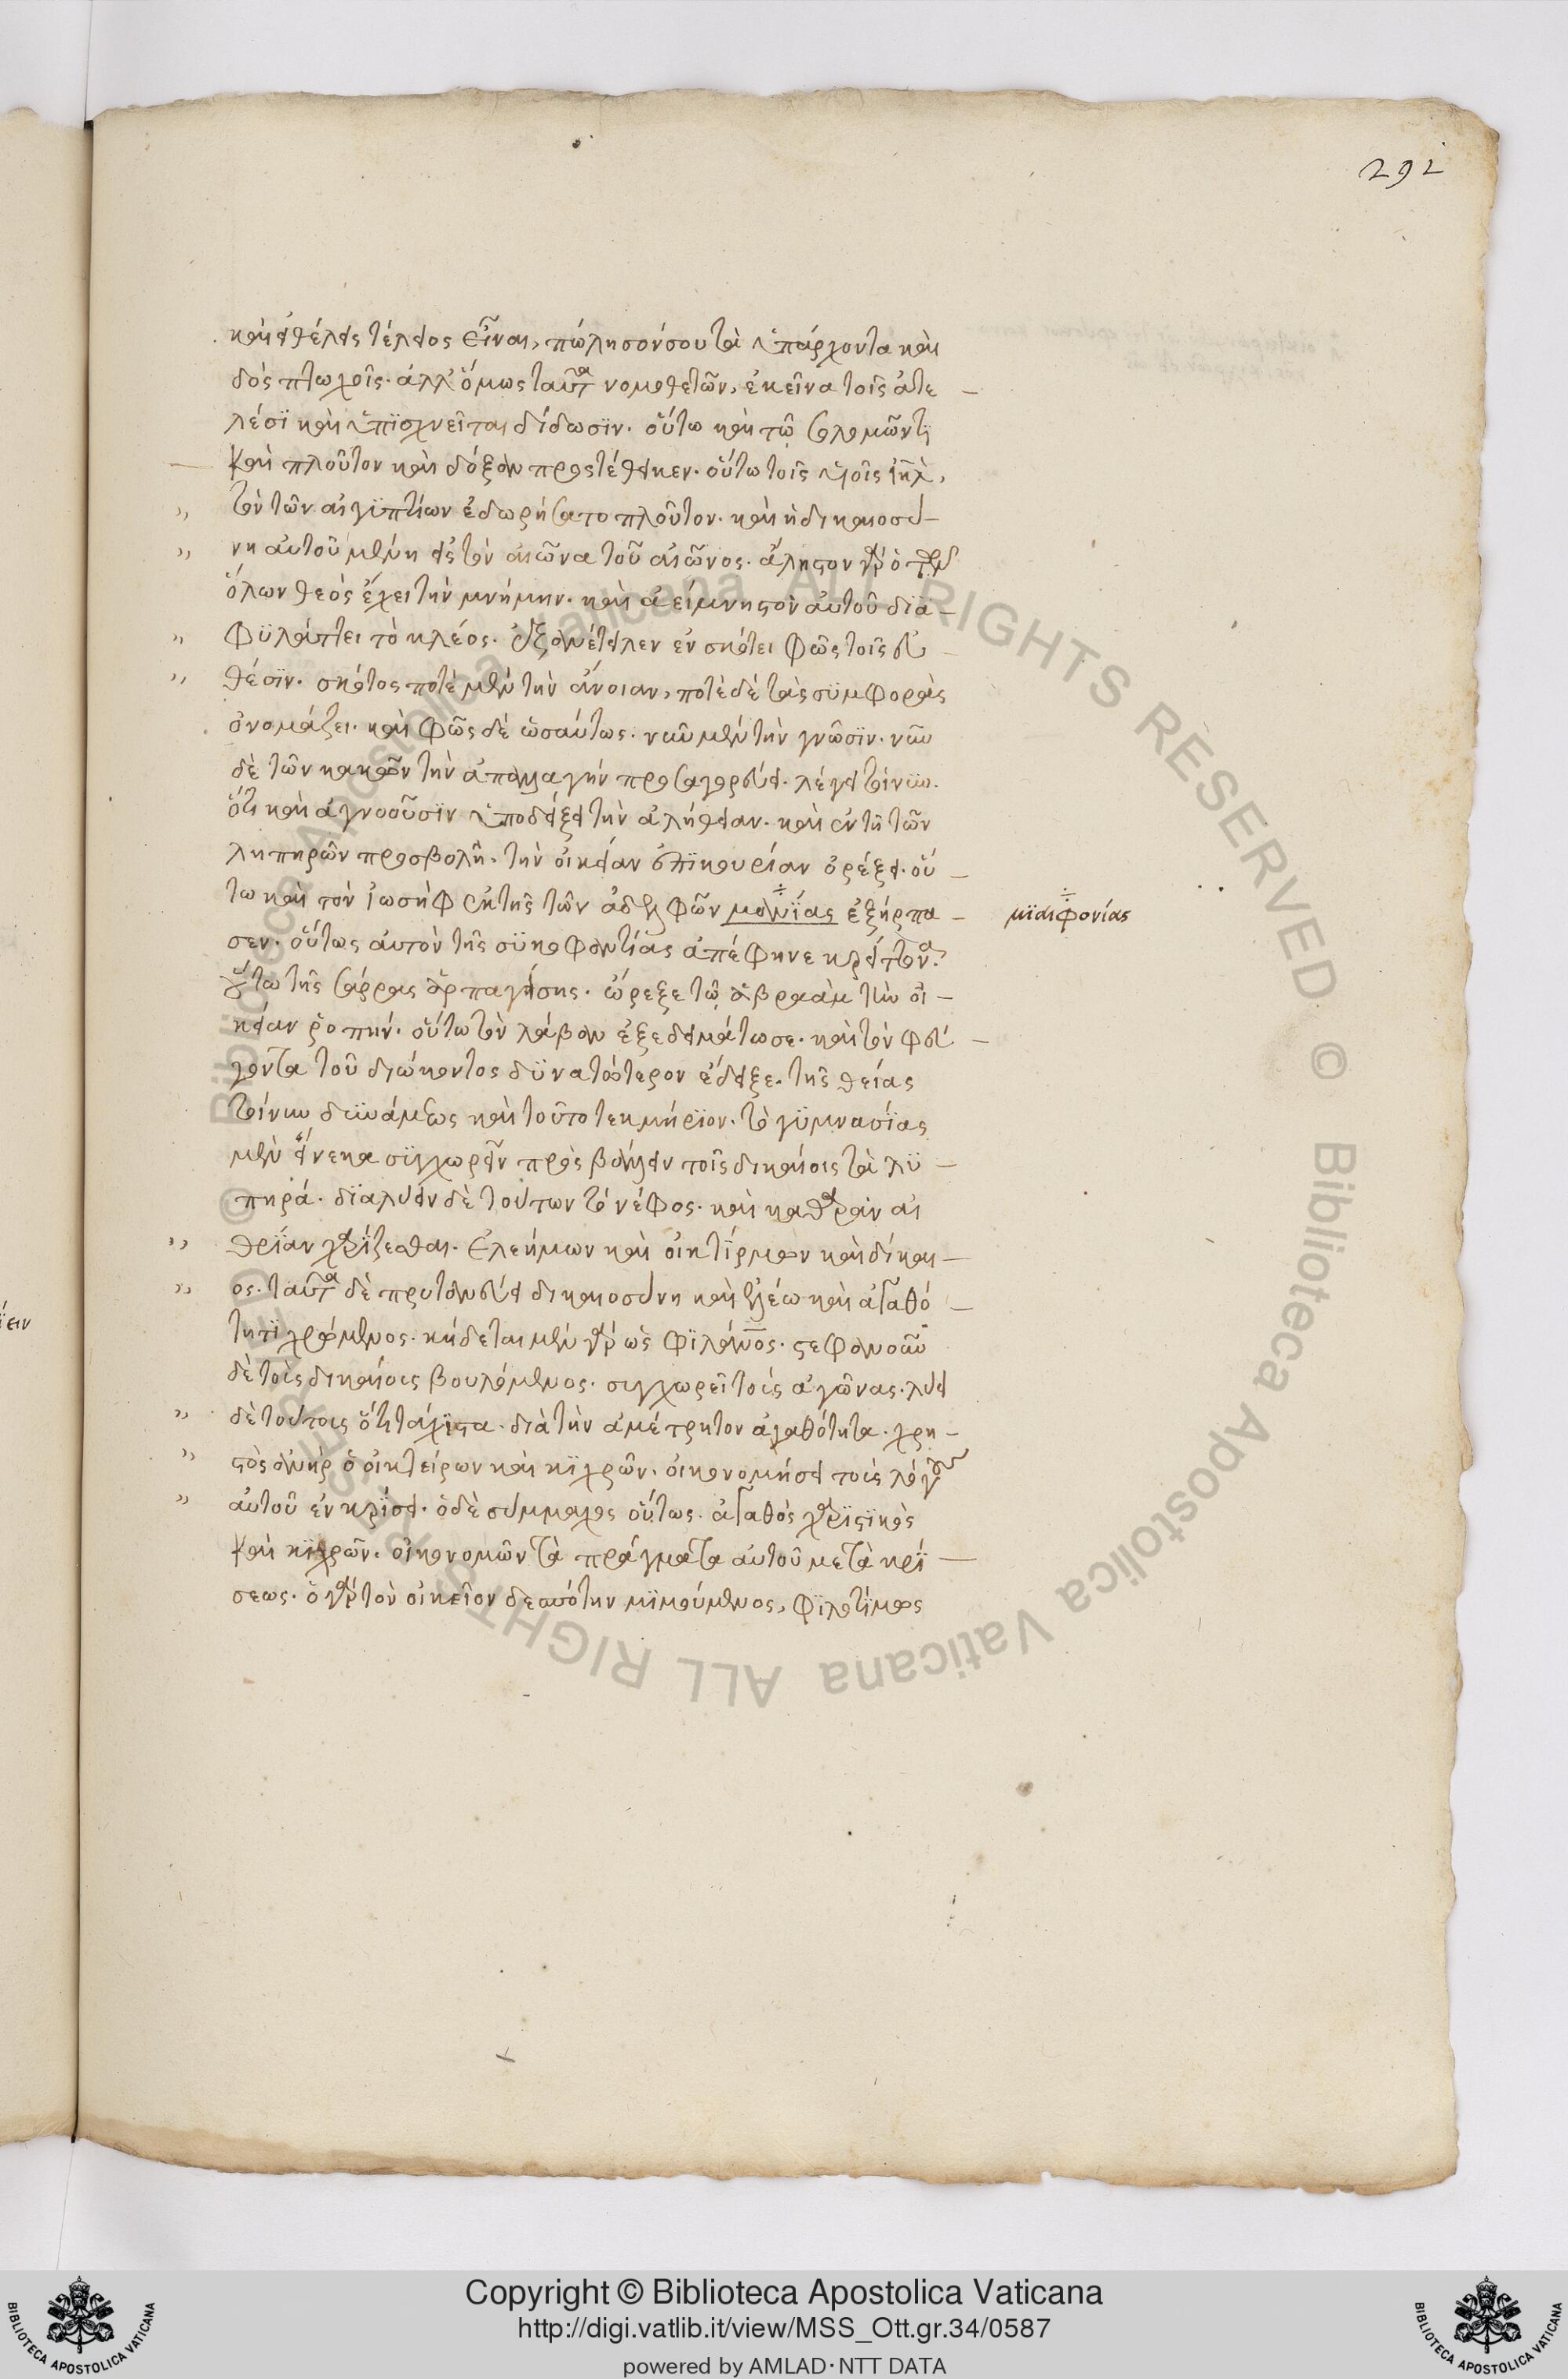 292
καὶ εἰ θέλεις τέλειος εἶναι, πώλησόν σου τὰ ὑπάρχοντα καὶ
δὸς πτωχοῖς. ἀλλ' ὅμως ταῦτα νομοθετῶν, ἐκεῖνα τοῖς ἀτε –
λέσϊ καὶ ὑπϊσχνεῖται δίδωσϊν. οὕτω καὶ τῷ σολομῶντϊ
καὶ πλοῦτον καὶ δόξαν προστέθεικεν. οὕτω τοῖς υἱοῖς ἰηλ,
τὸν τῶν αἰγϋπτίων ἐδωρήσατο πλοῦτον. καὶ ἡ δικαιοσύ –
νη αὐτοῦ μένει εἰς τὸν αἰῶνα τοῦ αἰῶνος. ἄληστον γὰρ ὁ τῶν
ὅλων θεὸς ἔχει τὴν μνήμην. καὶ ἀείμνηστον αὐτοῦ δϊα –
φϋλάττει τὸ κλέος. ἐξανέτειλεν ἐν σκότει φῶς τοῖς εὐ –
θέσϊν. σκότος ποτὲ μὲν τὴν ἄνοιαν, ποτὲ δὲ τὰς σϋμφορὰς
ὀνομάζει. καὶ φῶς δὲ ὡσαύτως. νῦν μὲν τὴν γνῶσϊν. νῦν
δὲ τῶν κακῶν τὴν ἀπαλλαγὴν προσαγορεύει. λέγει τοίνυν.
ὅτι καὶ ἀγνοοῦσϊν ὑποδείξει τὴν ἀλήθειαν. καὶ ἐν τῇ τῶν
λυπηρῶν προσβολῇ. τὴν οἰκείαν ἐπϊκουρίαν ὀρέξει. οὕ –
τω καὶ τὸν ἰωσὴφ ἐκ τῆς τῶν ἀδελφῶν μανϊάς ἐξήρπα –
σεν. οὕτως αὐτὸν τῆς σϋκοφαντίας ἀπέφηνε κρείττονα.
οὕτω τῆς σάρρας ἁρπαγείσης. ὤρεξε τῷ ἀβραὰμ τὴν οἰ –
κείαν ῥοπήν. οὕτω τὸν λάβαν ἐξεδειμάτωσε. καὶ τὸν φεύ –
γοντα τοῦ διώκοντος δϋνατώτερον ἔδειξε. τῆς θείας
τοίνυν δϋνάμεως καὶ τοῦτο τεκμήρϊον. τὸ γϋμνασϊας
μὲν εἵνεκα σϋγχωρεῖν προσβάλλειν τοῖς δικαίοις τὰ λϋ –
πηρά. δϊαλύειν δὲ τούτων τὸ νέφος. καὶ καθαρὰν αἰ
θρίαν χαρίζεσθαι. ἐλεήμων καὶ οἰκτίρμων καὶ δίκαι –
ος. ταῦτα δὲ πρυτανεύει δικαιοσύνη καὶ ἐλέω καὶ ἀγαθό –
τητϊ χρώμενος. κήδεται μὲν γὰρ ὡς φϊλάνος. στεφανοῦν
δὲ τοὺς δικαίους βουλόμενος. συγχωρεῖ τοὺς ἀγῶνας. λύει
δὲ τούτους ὅτι τάχϊστα. διὰ τὴν ἀμέτρητον ἀγαθότητα. χρη –
στὸς ἀνὴρ ὁ οἰκτείρων καὶ κϊχρῶν. οἰκονομήσει τοὺς λόγους
αὐτοῦ ἐν κρίσει. ὁ δὲ σύμμαχος οὕτως. ἀγαθὸς χαρϊστϊκὸς
καὶ κϊχρῶν. οἰκονομῶν τὰ πράγματα αὐτοῦ μετὰ κρί –
σεως. ὁ γὰρ τὸν οἰκεῖον δεσπότην μϊμούμενος, φϊλοτίμως
μϊαιφονίας
Copyright © Biblioteca Apostolica Vaticana
http://digi.vatlib.it/view/MSS_Ott.gr.34/0587
powered by AMLAD·NTT DATA
BIBLIOTECA APOSTOLICA VATICANA
BIBLIOTECA APOSTOLICA VATICANA
© Biblioteca Apostolica Vaticana ALL RIGHTS RESERVED © Biblioteca Apostolica Vaticana ALL RIGHTS RESERVED